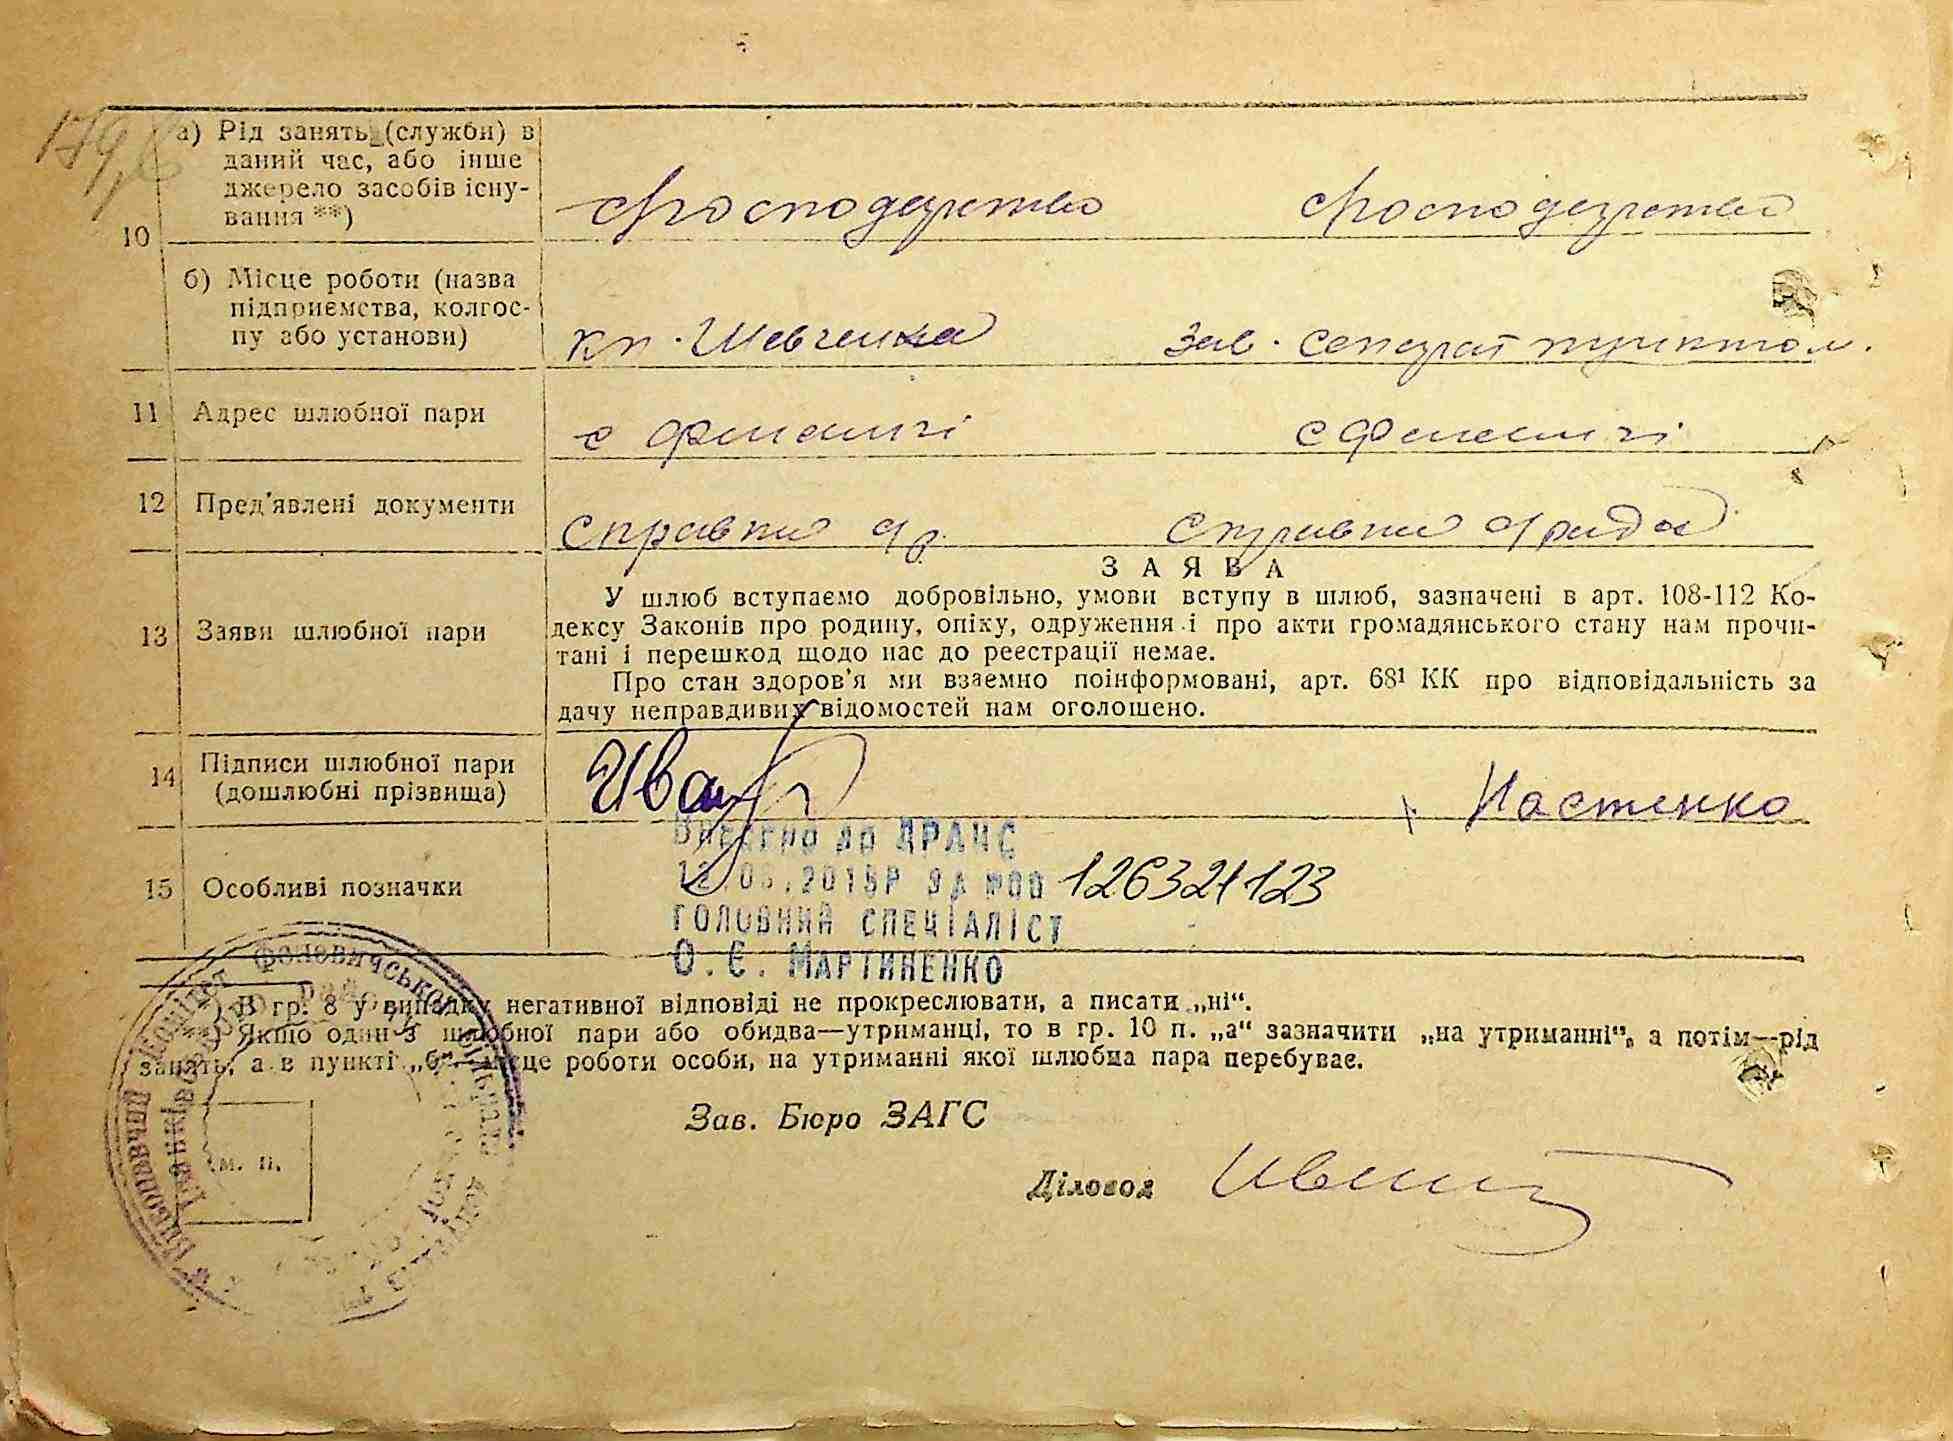 а) Рід занять (служби) в
даний час, або інше
джерело засобів існу-
вання **)
10
господарство господарство
б) Місце роботи (назва
підприємства, колгос-
пу або установи)
кп. Шевченка Зав. сепарат пунктом.
11 Адрес шлюбної пари
с с
12 Пред'явлені документи
справка справка
ЗАЯВА
У шлюб вступаємо добровільно, умови вступу в шлюб, зазначені в арт. 108-112 Ко-
13 Заяви шлюбної пари
дексу Законів про родину, опіку, одруження і про акти громадянського стану нам прочи-
тані і перешкод щодо нас до реєстрації немає.
Про стан здоров'я ми взаємно поінформовані, арт. 68¹ КК про відповідальність за
дачу неправдивих відомостей нам оголошено.
14 Підписи шлюбної пари
(дошлюбні прізвища)
Настенко
Внесено до ДРАЦС
15 Особливі позначки
за №00 126321123
Головний спеціаліст
О.Є. Мартиненко
*) В гр. 8 у випадку негативної відповіді не прокреслювати, а писати „ні“.
**) Якщо один з шлюбної пари або обидва—утриманці, то в гр. 10 п. „а“ зазначити „на утриманні“, а потім—рід
занять, а в пункті „б“ місце роботи особи, на утриманні якої шлюбна пара перебуває.
Зав. Бюро ЗАГС
м. п.
Діловод
Виконавчий комітет Фоневичської сільради